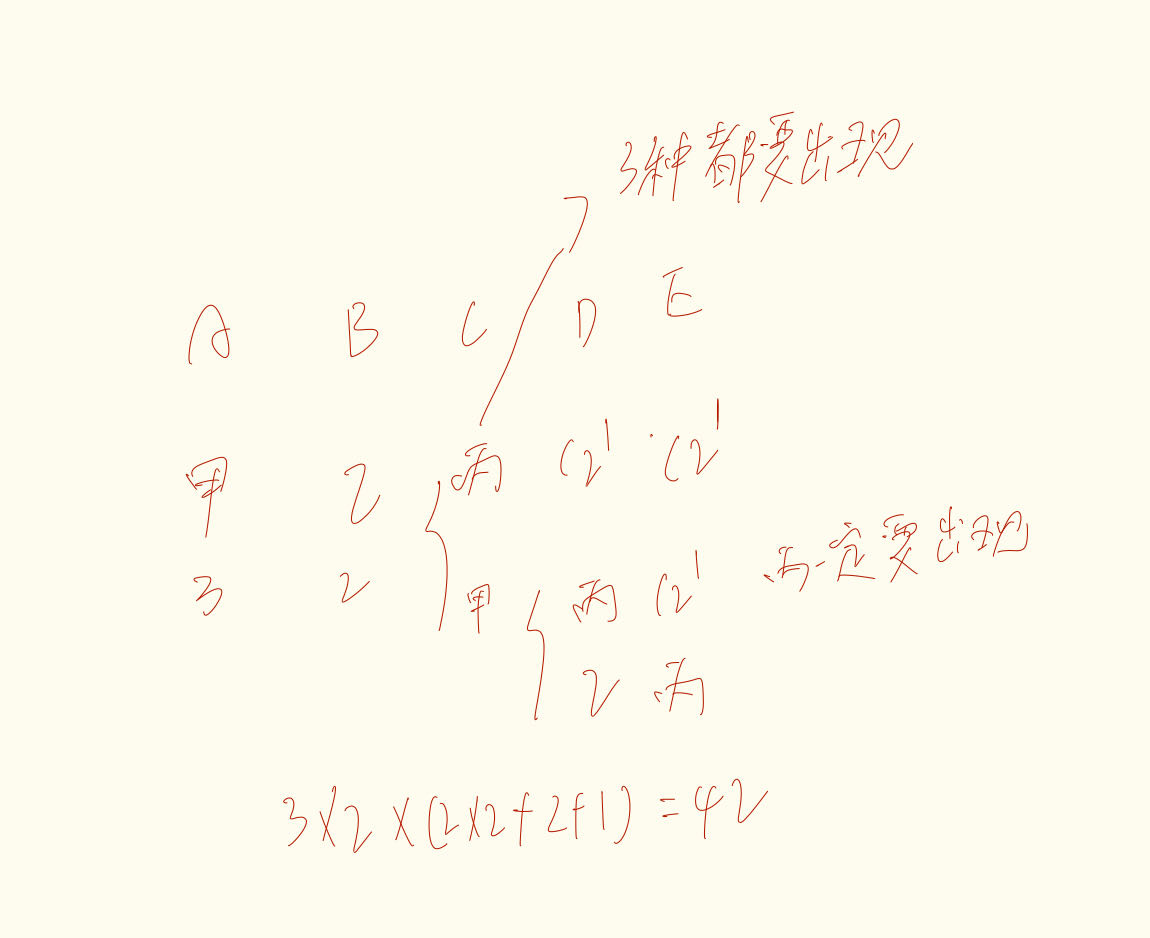 3种都要出现
A B C D E
甲 乙 丙 C2^1 · C2^1
3 2 甲 丙 C2^1 丙一定要出现
乙 丙
3×2×(2×2+2+1)=42